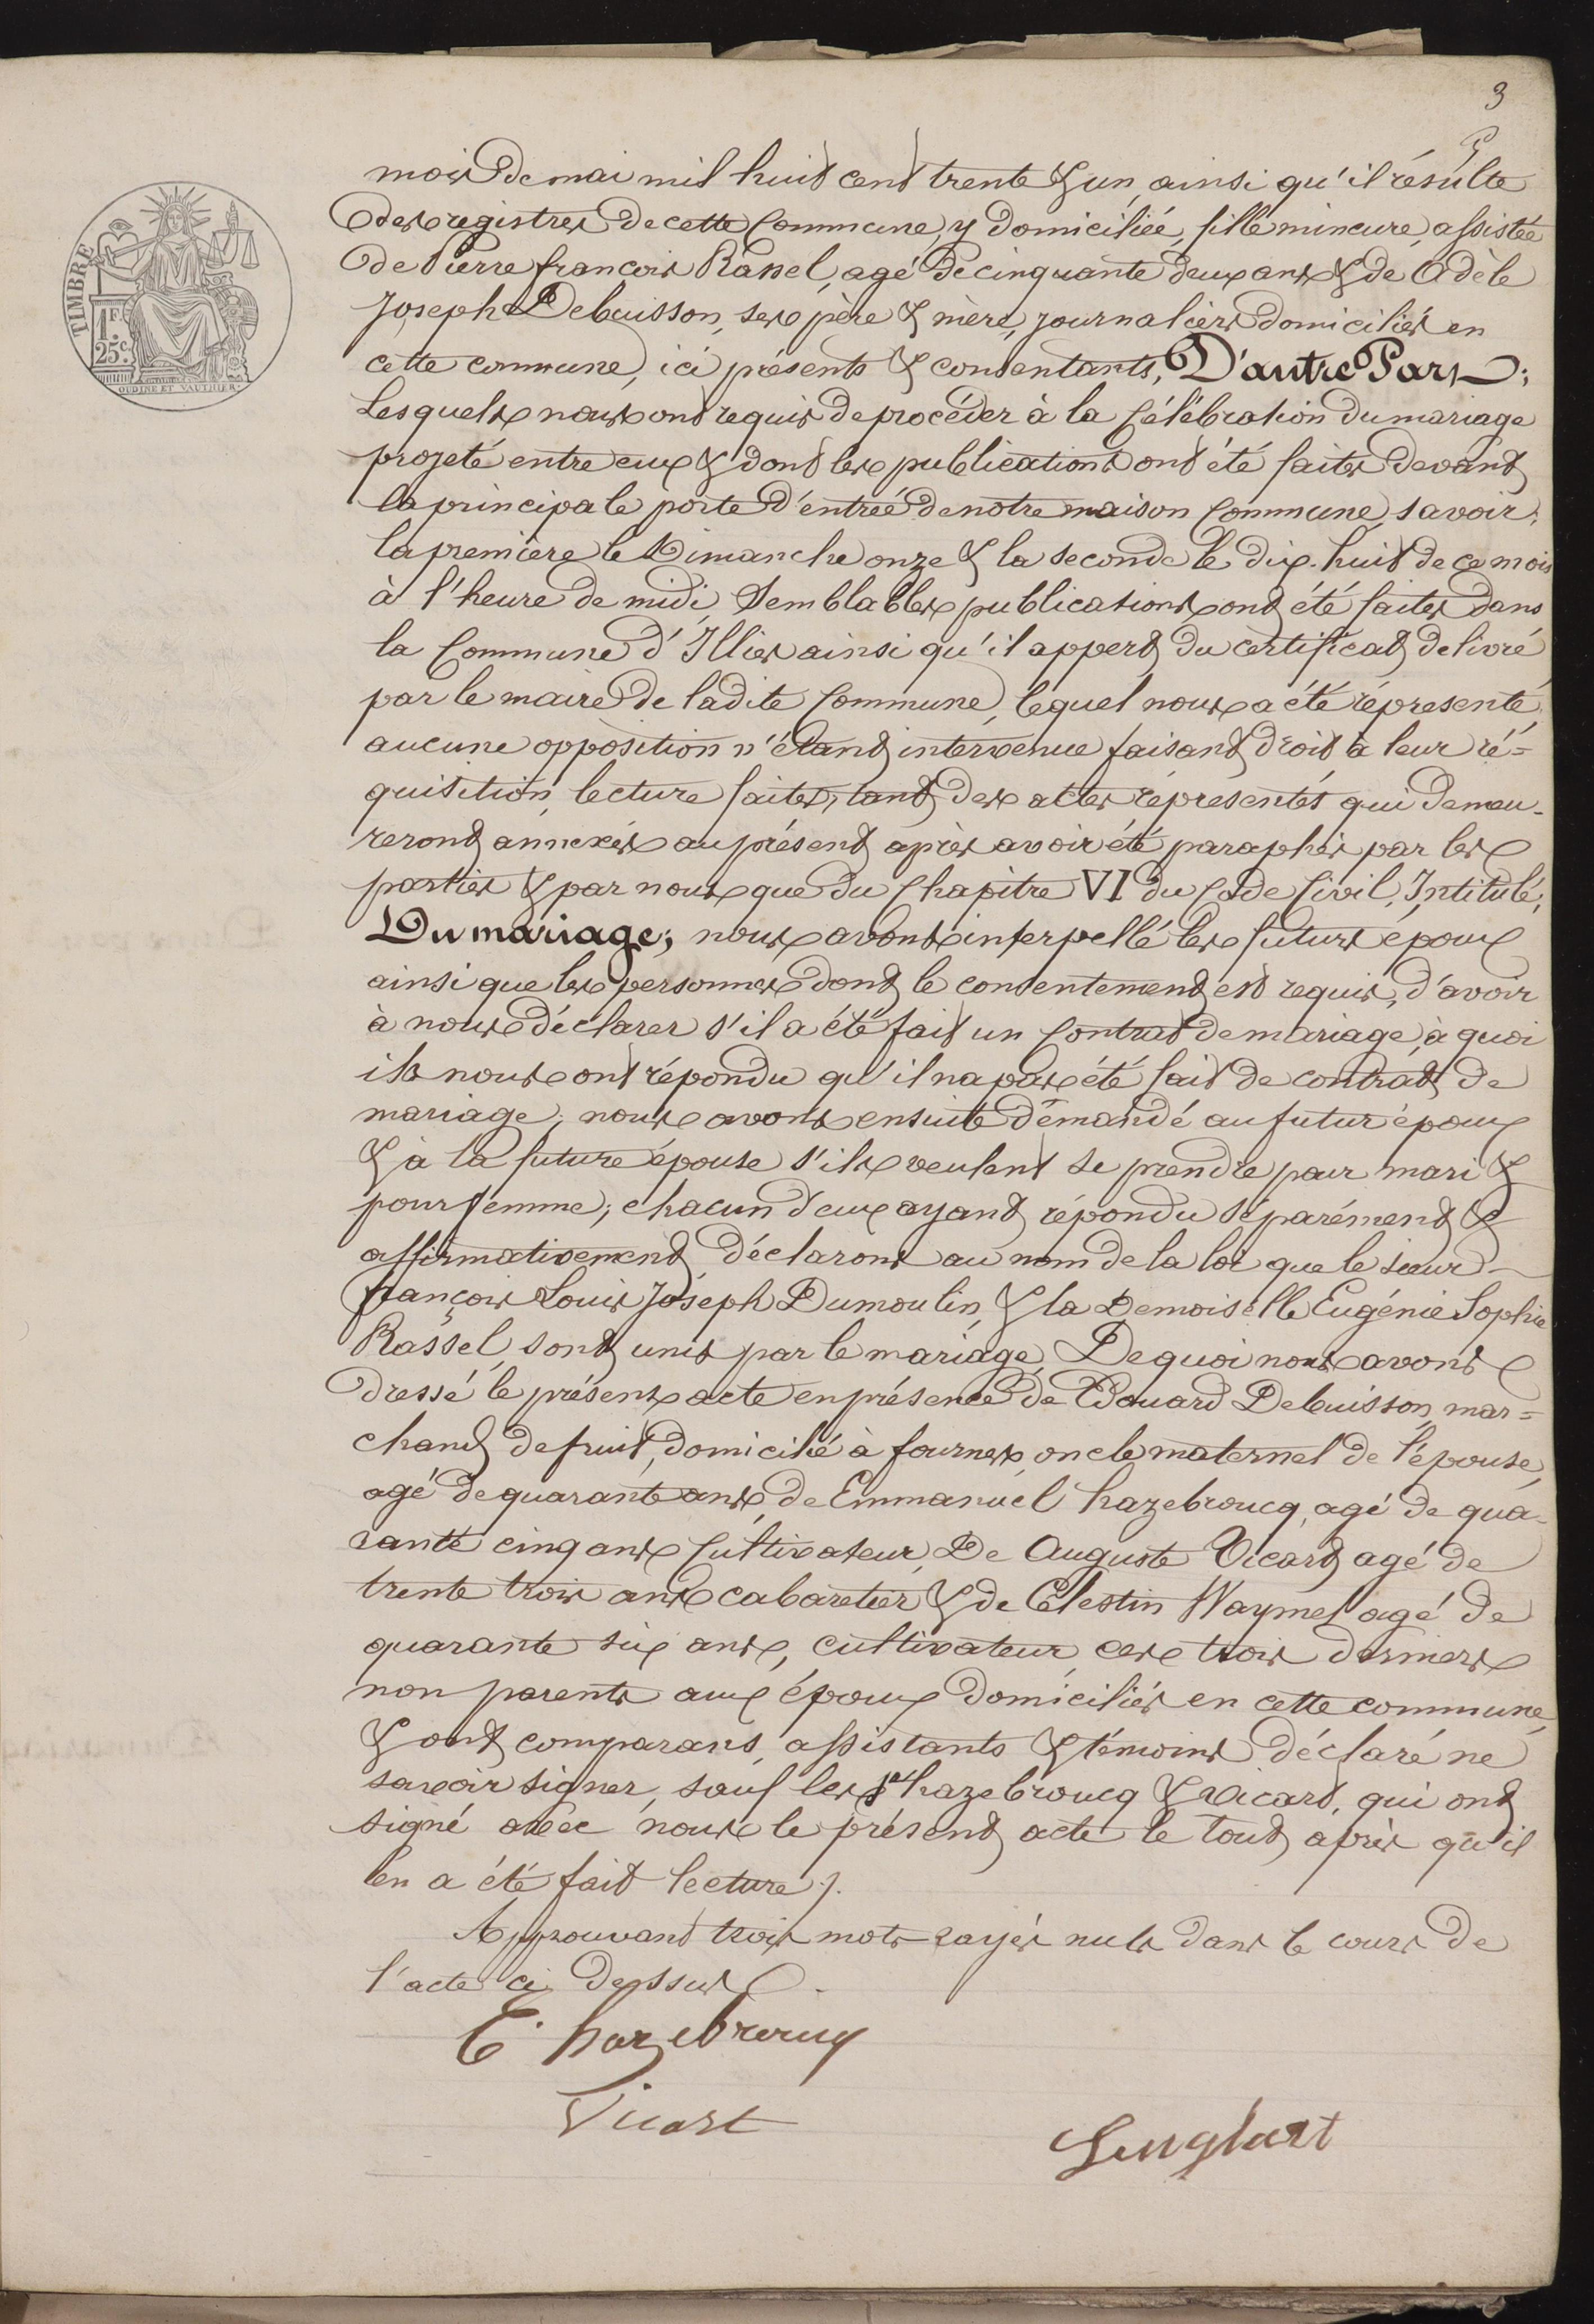 3
TIMBRE
1F.
25c.
OUDINÉ ET VAUTHIER
mois de mai mil huit cent trente & un, ainsi qu'il résulte
des registres de cette Commune, y domiciliée, fille mineure, assistée
de Pierre françois Rassel, agé de cinquante deux ans & de Adèle
Joseph Debuisson, ses père & mère, journaliers domiciliés en
cette commune, ici présents & consentants, D'autre Part;
Lesquels nous ont requis de procéder à la Célébration du mariage
projeté entre eux & dont les publications ont été faites devant
la principale porte d'entrée de notre maison Commune, savoir:
la première le Dimanche onze & la seconde le dix-huit de ce mois
à l'heure de midi, Semblables publications ont été faites dans
la Commune d'Illies ainsi qu'il appert du certificat delivré
par le maire de ladite Commune, lequel nous a été représenté,
aucune opposition n'étant intervenue faisant droit à leur ré=
quisition, lecture faites, tant des actes représentés qui demeu-
reront annexés au présent après avoir été paraphés par les
parties & par nous que du Chapitre VI du Code Civil, Intitulé,
Du mariage; nous avons interpellé les futurs époux
ainsi que les personnes dont le consentement est requis, d'avoir
à nous déclarer s'il a été fait un Contrat de mariage, à quoi
ils nous ont répondu qu'il n'a pas été fait de contrat de
mariage; nous avons ensuite demandé au futur époux
& à la future épouse s'ils veulent se prendre pour mari &
pour femme; chacun d'eux ayant répondu séparément &
affirmativement déclarons au nom de la loi que le sieur
françois Louis Joseph Dumoulin, & la Demoiselle Eugénie Sophie
Rassel, sont unis par le mariage, De quoi nous avons
dressé le présent acte en présence de Edouard Debuisson, mar=
chand de fruit, domicilié à fournes, oncle maternel de l'épouse,
agé de quarante ans, de Emmanuel hazebroucq, agé de qua-
rante cinq ans Cultivateur, De Auguste Vicart, agé de
trente trois ans cabaretier & de Célestin Waymel agé de
quarante six ans, cultivateur ces trois derniers
non parents aux époux domiciliés en cette commune,
& ont comparans, assistants & témoins déclaré ne
savoir signer, sauf les srs hazebroucq & Vicart, qui ont
signé avec nous le présent acte le tout après qu'il
en a été fait lecture /.
Approuvant trois mots rayés nuls dans le cours de
l'acte ci dessus.
E. hazebroucq
Vicart
Lenglart